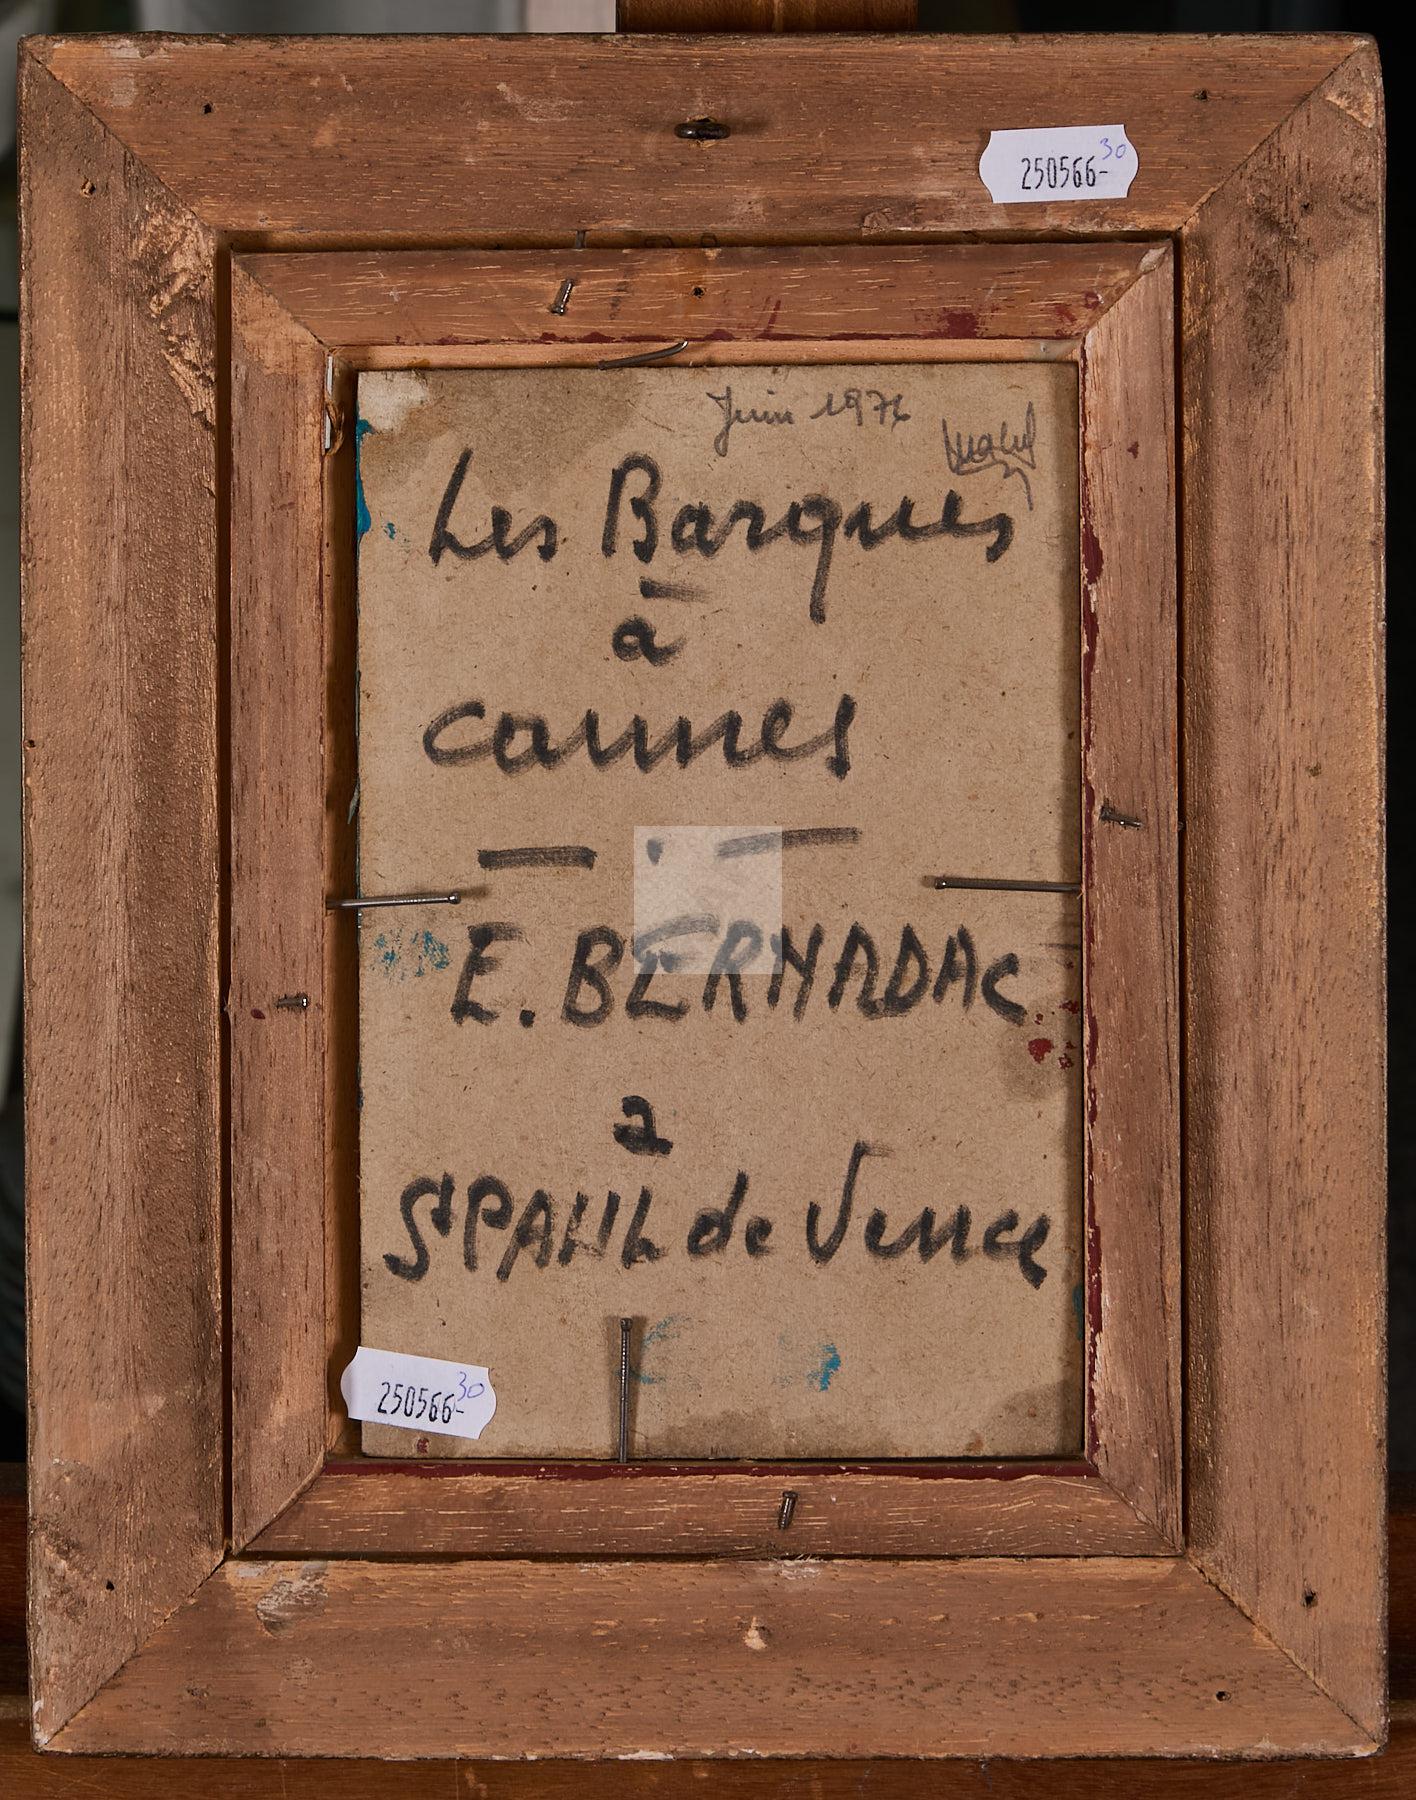 250566-30
Juin 1976
Les Barques
à
cannes
E. BERNADAC
a
St PAUL de Vence
250566-30